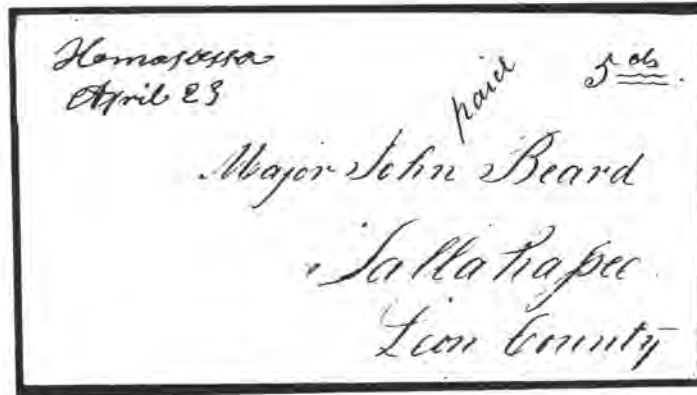 Homosassa
April 23
paid
5 cts.
Major John Beard
Tallahassee
Leon County